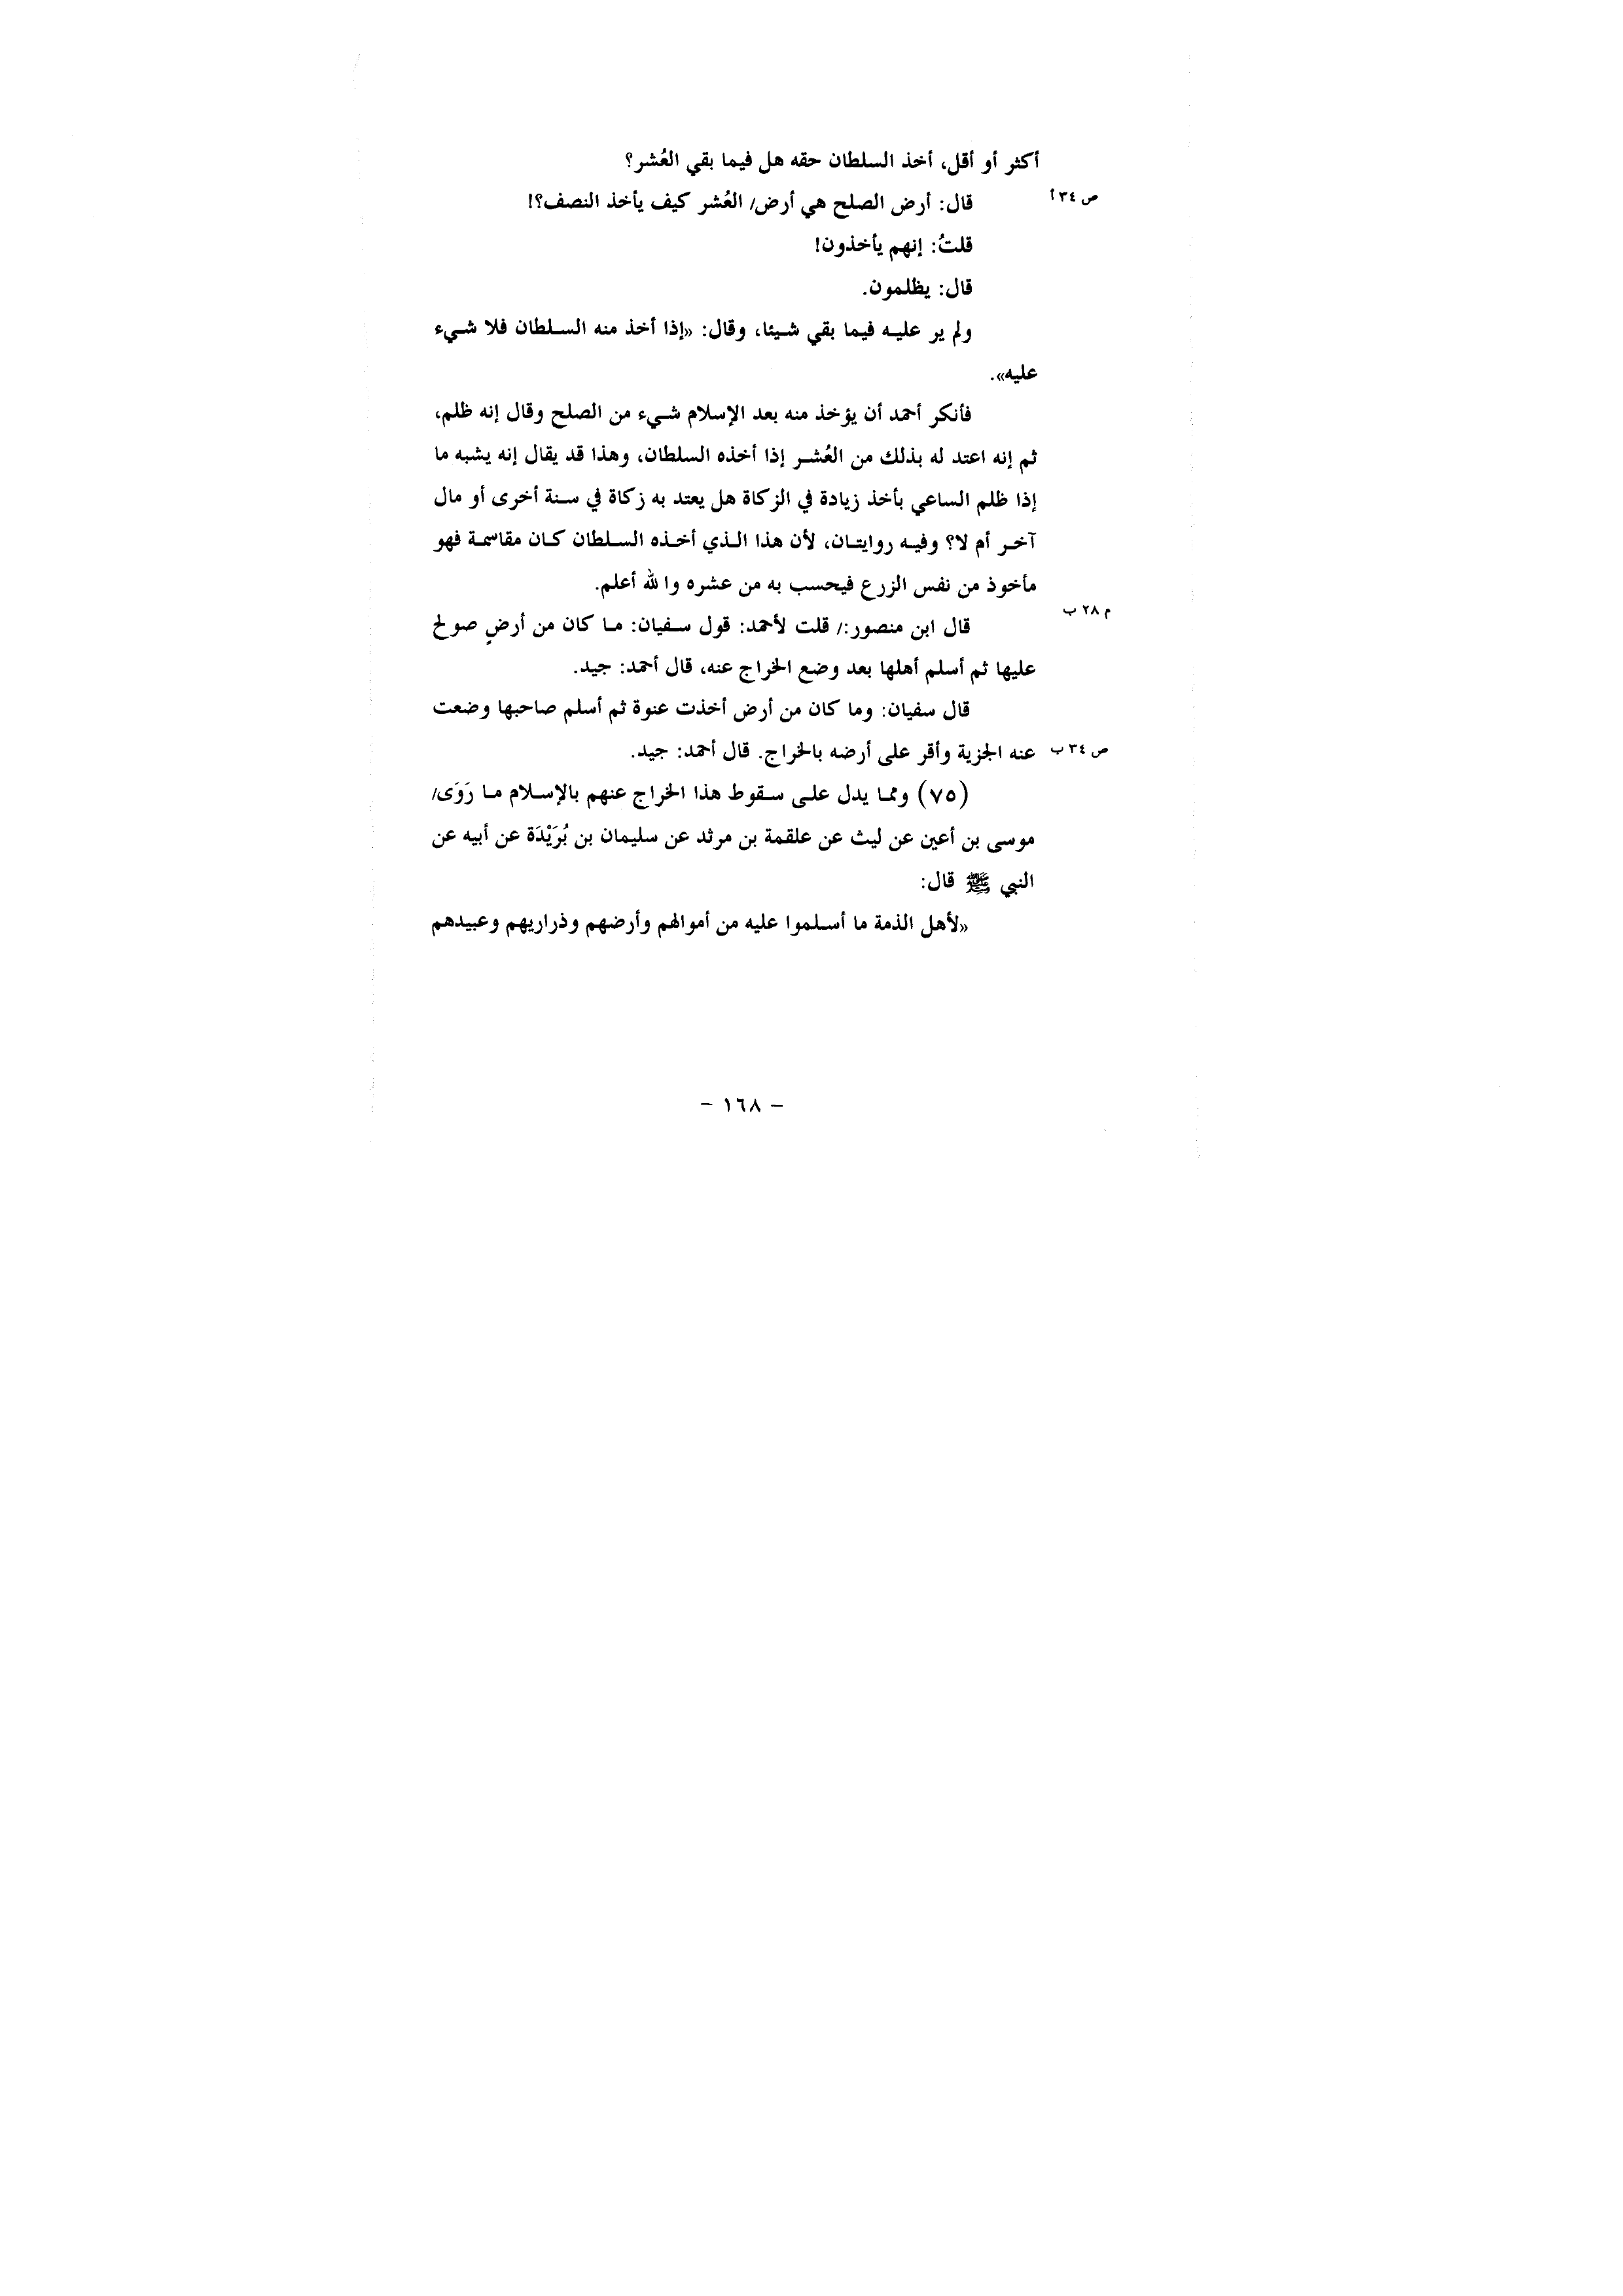 أكثر أو أقل، أخذ السلطان حقه هل فيما بقي العُشر؟
ص ٣٤ أ
قال: أرض الصلح هي أرض/ العُشر كيف يأخذ النصف؟!
قلتُ: إنهم يأخذون!
قال: يظلمون.
ولم ير عليه فيما بقي شيئا، وقال: «إذا أخذ منه السلطان فلا شيء
عليه».
فأنكر أحمد أن يؤخذ منه بعد الإسلام شيء من الصلح وقال إنه ظلم،
ثم إنه اعتد له بذلك من العُشر إذا أخذه السلطان، وهذا قد يقال إنه يشبه ما
إذا ظلم الساعي بأخذ زيادة في الزكاة هل يعتد به زكاة في سنة أخرى أو مال
آخر أم لا؟ وفيه روايتان، لأن هذا الذي أخذه السلطان كان مقاسمة فهو
مأخوذ من نفس الزرع فيحسب به من عشره والله أعلم.
م ٢٨ ب
قال ابن منصور:/ قلت لأحمد: قول سفيان: ما كان من أرضٍ صولح
عليها ثم أسلم أهلها بعد وضع الخراج عنه، قال أحمد: جيد.
قال سفيان: وما كان من أرض أخذت عنوة ثم أسلم صاحبها وضعت
ص ٣٤ ب
عنه الجزية وأقر على أرضه بالخراج. قال أحمد: جيد.
(٧٥) ومما يدل على سقوط هذا الخراج عنهم بالإسلام ما رَوَى/
موسى بن أعين عن ليث عن علقمة بن مرثد عن سليمان بن بُرَيْدَة عن أبيه عن
النبي ﷺ قال:
«لأهل الذمة ما أسلموا عليه من أموالهم وأرضهم وذراريهم وعبيدهم
- ١٦٨ -